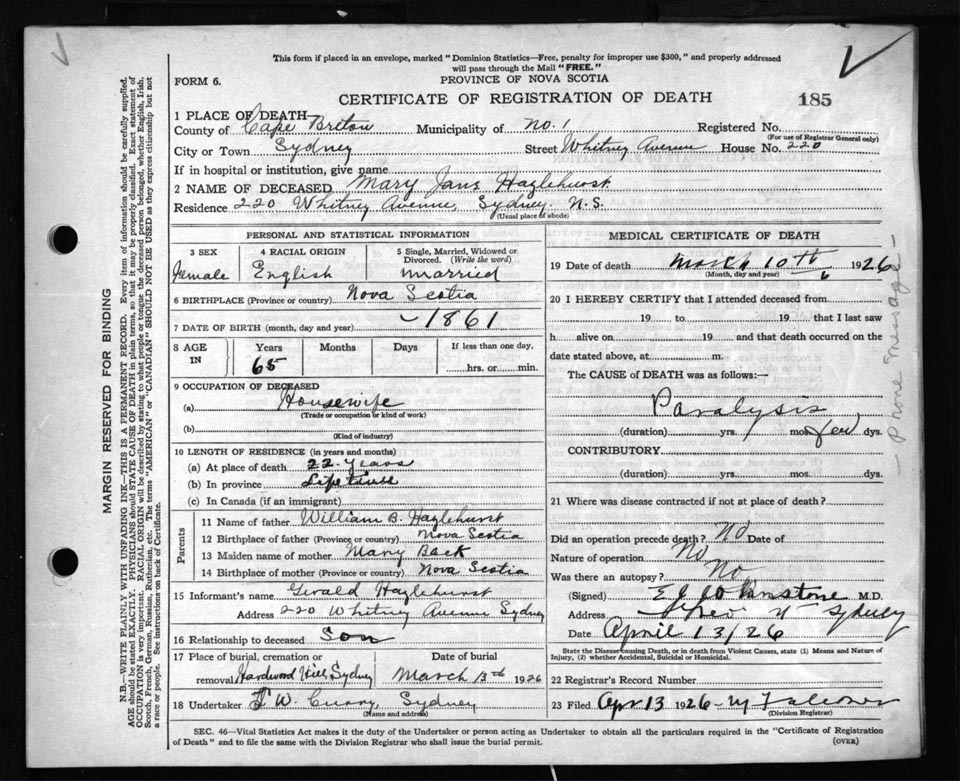 This form if placed in an envelope, marked "Dominion Statistics—Free, penalty for improper use $300," and properly addressed
will pass through the Mail "FREE."
FORM 6.
PROVINCE OF NOVA SCOTIA
CERTIFICATE OF REGISTRATION OF DEATH
185
1 PLACE OF DEATH
County of Cape Breton Municipality of No. 1 Registered No.
(For use of Registrar General only)
City or Town Sydney Street Whitney Avenue House No. 220
If in hospital or institution, give name
2 NAME OF DECEASED Mary Jane Hazlehurst
Residence 220 Whitney Avenue, Sydney N.S.
(Usual place of abode)
PERSONAL AND STATISTICAL INFORMATION
3 SEX 4 RACIAL ORIGIN 5 Single, Married, Widowed or Divorced. (Write the word)
Female English Married
6 BIRTHPLACE (Province or country) Nova Scotia
7 DATE OF BIRTH (month, day and year) — 1861
8 AGE IN Years Months Days If less than one day,
65 hrs. or min.
9 OCCUPATION OF DECEASED
(a) Housewife
(Trade or occupation or kind of work)
(b)
(Kind of industry)
10 LENGTH OF RESIDENCE (in years and months)
(a) At place of death 22 years
(b) In province Life time
(c) In Canada (if an immigrant)
Parents
11 Name of father William B. Hazlehurst
12 Birthplace of father (Province or country) Nova Scotia
13 Maiden name of mother Mary
14 Birthplace of mother (Province or country) Nova Scotia
15 Informant's name Gerald Hazlehurst
Address 220 Whitney Avenue Sydney
16 Relationship to deceased Son
17 Place of burial, cremation or removal Hardwood Hill Sydney
Date of burial March 13th 1926
18 Undertaker W. Curry, Sydney
(Name and address)
MEDICAL CERTIFICATE OF DEATH
19 Date of death March 10th 1926
(Month, day and year)
20 I HEREBY CERTIFY that I attended deceased from
19 to 19 that I last saw
h alive on 19 and that death occurred on the
date stated above, at m.
The CAUSE of DEATH was as follows:—
Paralysis
(duration) yrs. mos. few dys.
CONTRIBUTORY
(duration) yrs. mos. dys.
21 Where was disease contracted if not at place of death?
Did an operation precede death? No Date of
Nature of operation No
Was there an autopsy? No
(Signed) M.D.
Address Sydney
Date April 13/26
State the Disease causing Death, or in death from Violent Causes, state (1) Means and Nature of
Injury, (2) whether Accidental, Suicidal or Homicidal.
22 Registrar's Record Number
23 Filed Apr 13 1926
(Division Registrar)
SEC. 46—Vital Statistics Act makes it the duty of the Undertaker or person acting as Undertaker to obtain all the particulars required in the "Certificate of Registration
of Death" and to file the same with the Division Registrar who shall issue the burial permit.
(OVER)
MARGIN RESERVED FOR BINDING
N.B.—WRITE PLAINLY WITH UNFADING INK—THIS IS A PERMANENT RECORD. Every item of information should be carefully supplied.
AGE should be stated EXACTLY. PHYSICIANS should STATE CAUSE OF DEATH in plain terms, so that it may be properly classified. Exact statement of
OCCUPATION is very important. RACIAL ORIGIN will be described by stating to what people or tongue the deceased person belonged, whether English, Irish,
Scotch, French, German, Russian, Ruthenian, etc. The terms "AMERICAN" or "CANADIAN" SHOULD NOT BE USED as they express citizenship but not
a race or people. See instructions on back of Certificate.
- Phone message -